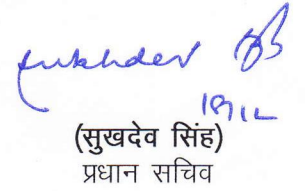 Sukhdev
19/12
(सुखदेव सिंह)
प्रधान सचिव